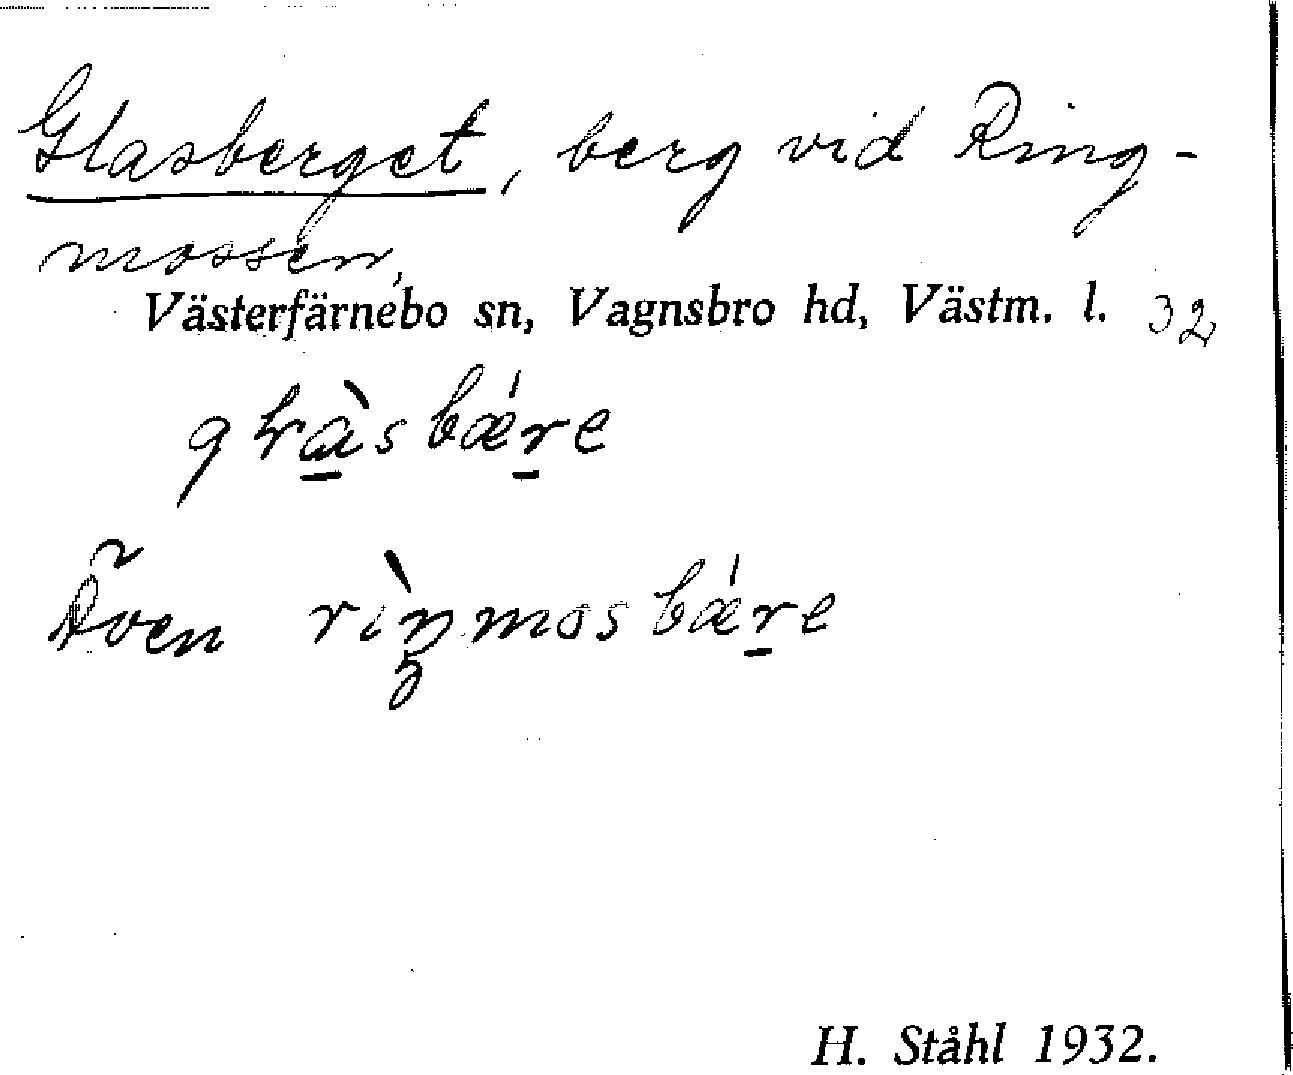 Glasberget, berg vid Ring-
mossen,
Västerfärnebo sn, Vagnsbro hd, Västm. l. 32
gɫà̱sbǽṟe
Även rìŋmosbǽṟe
H. Ståhl 1932.